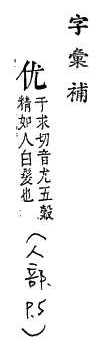 字彙補
优
于求切音尤五穀
精如人白髮也
(人部. P.5)